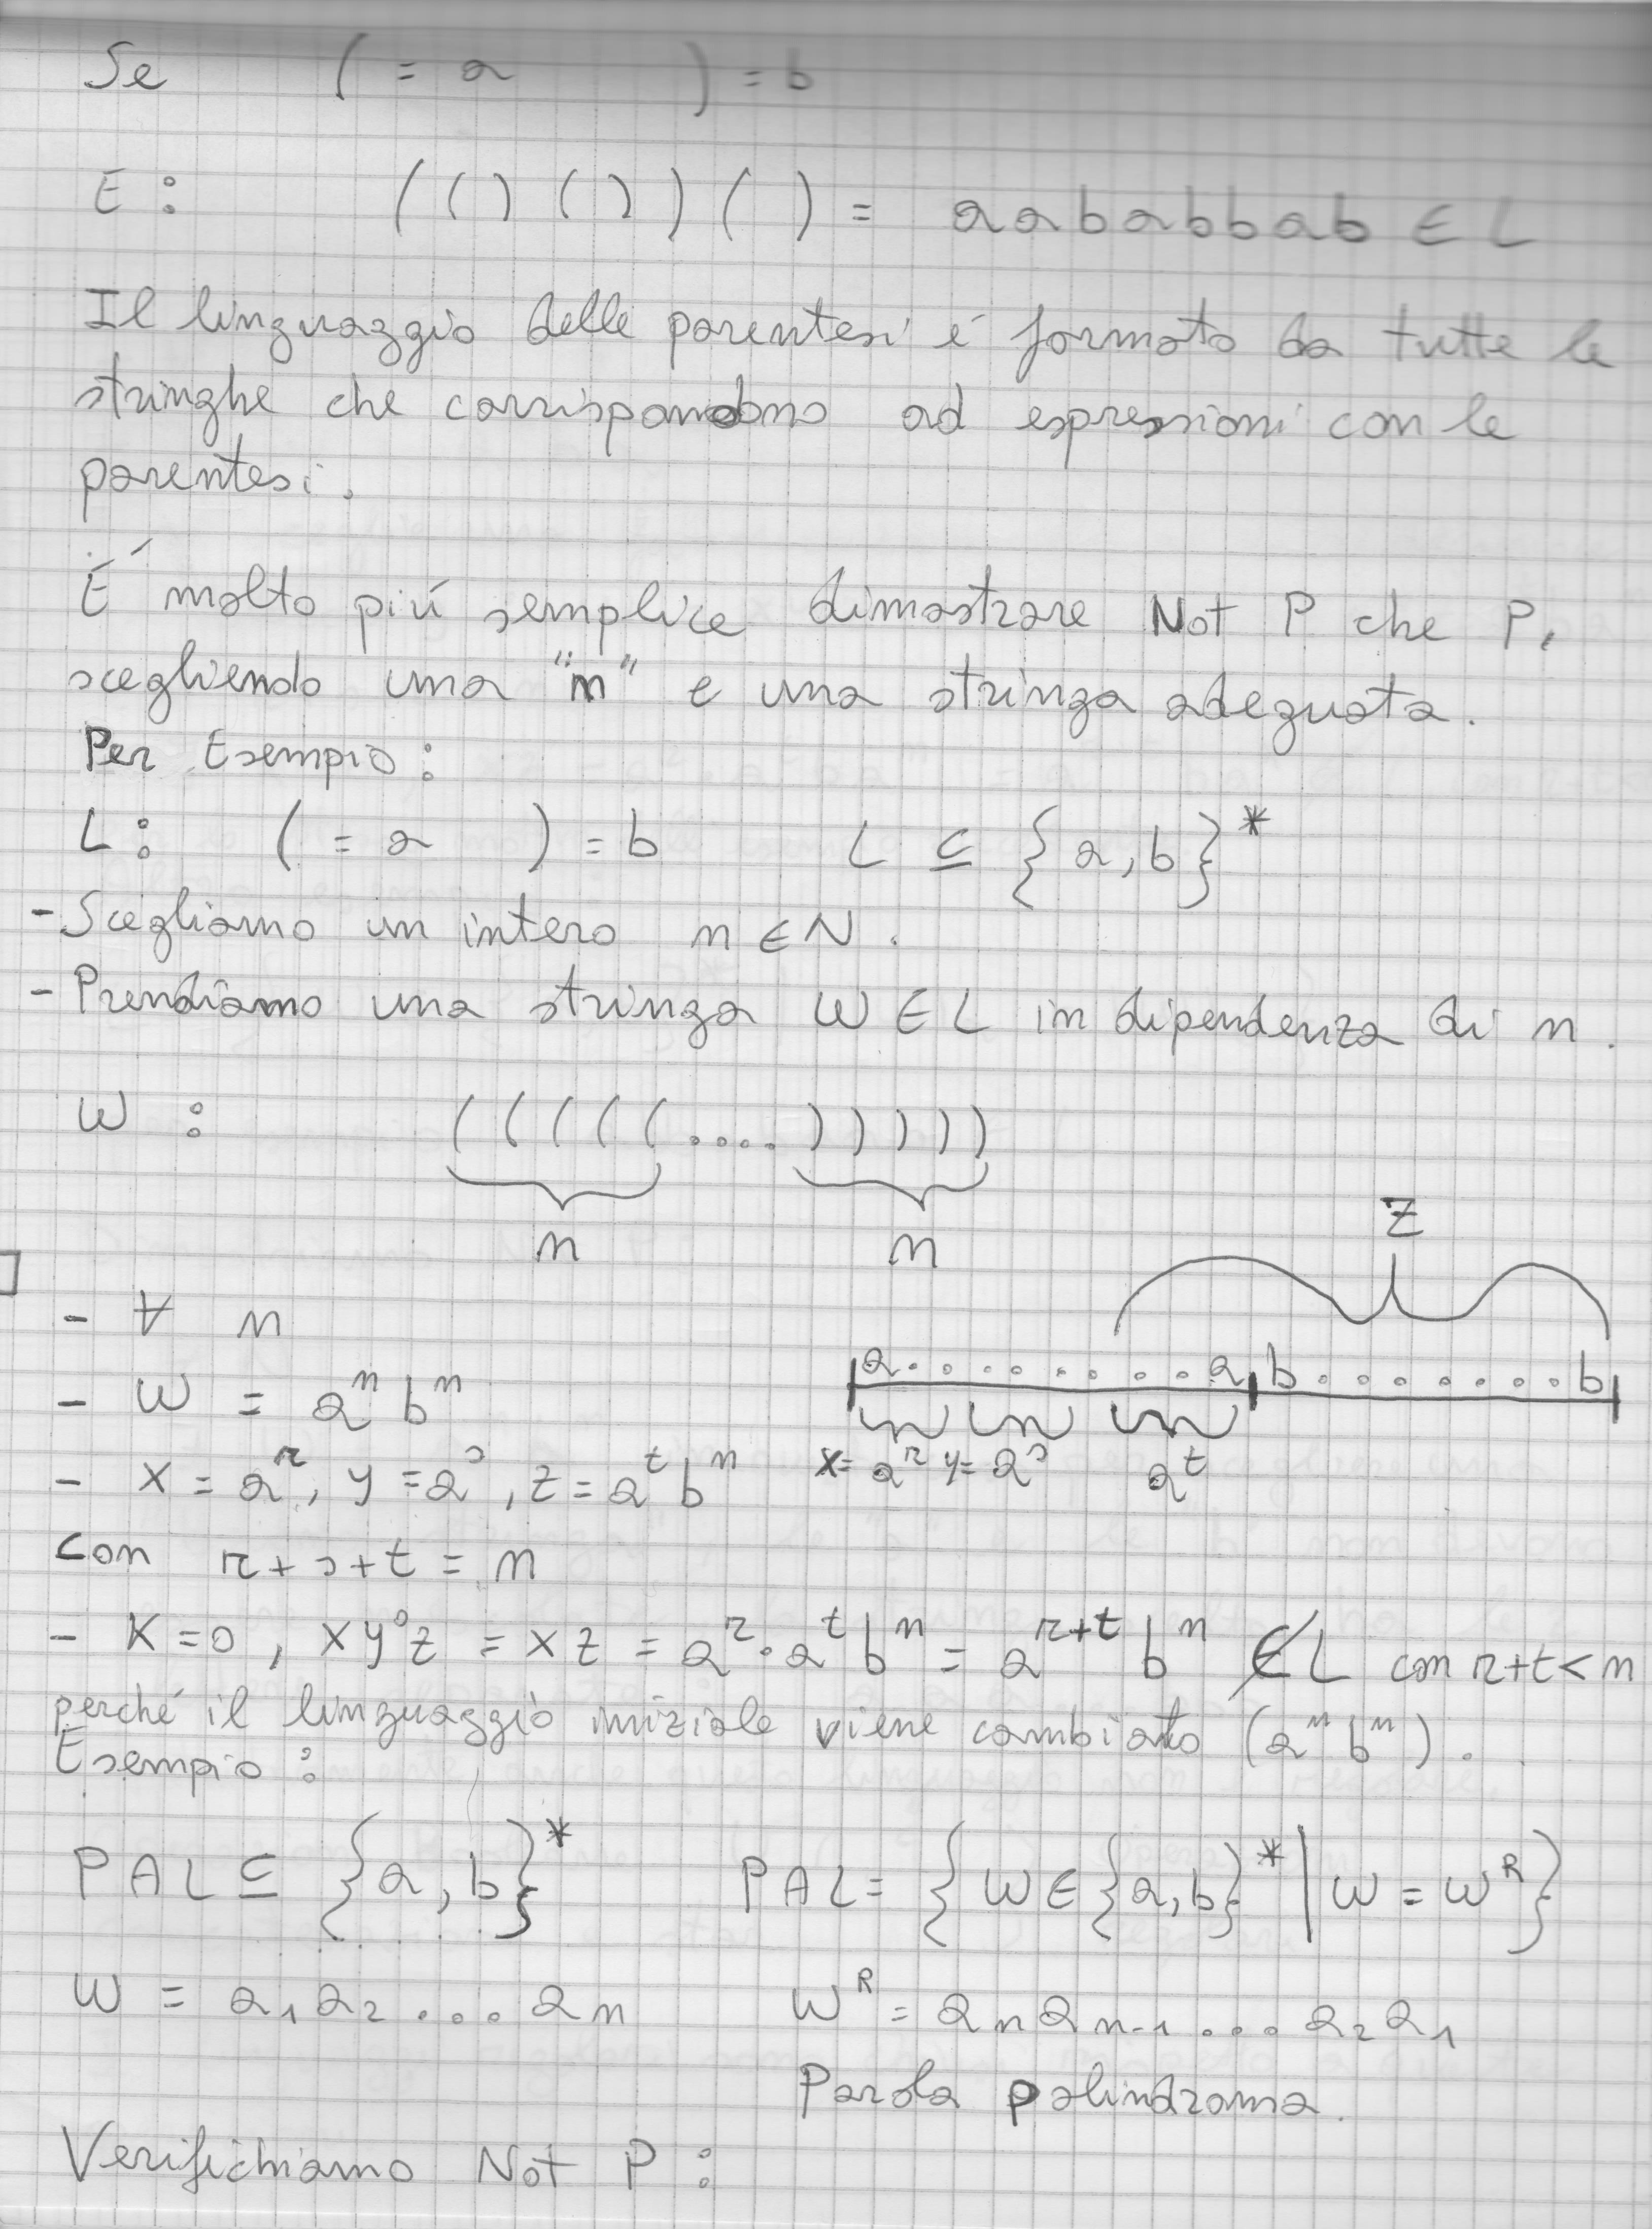 Se ( = a ) = b
E : ( ( ) ( ) ) ( ) = aababbab ∈ L
Il linguaggio delle parentesi é formato da tutte le
stringhe che corrispondono ad espressioni con le
parentesi.
É molto piú semplice dimostrare Not P che P,
scegliendo una "n" e una stringa adeguata.
Per Esempio :
L : ( = a ) = b L ⊆ {a,b}*
- Scegliamo un intero n ∈ N .
- Prendiamo una stringa W ∈ L in dipendenza di n .
W : ( ( ( ( ( .... ) ) ) ) )
n n
z
- ∀ n
a . . . . . . . . a b . . . . . . . b
- W = aⁿ bⁿ
- x = aʳ, y = aˢ, z = aᵗ bⁿ
x= aʳ y= aˢ aᵗ
Con r+s+t = n
- K=0 , xy⁰z = xz = aʳ·aᵗ bⁿ = aʳ⁺ᵗ bⁿ ∉ L con r+t<n
perché il linguaggio iniziale viene cambiato (aⁿ bⁿ) .
Esempio :
PAL ⊆ {a,b}* PAL = {W ∈ {a,b}* | W = Wᴿ}
W = a₁a₂ .... aₙ Wᴿ = aₙaₙ₋₁ .... a₂a₁
Parola palindroma.
Verifichiamo Not P :